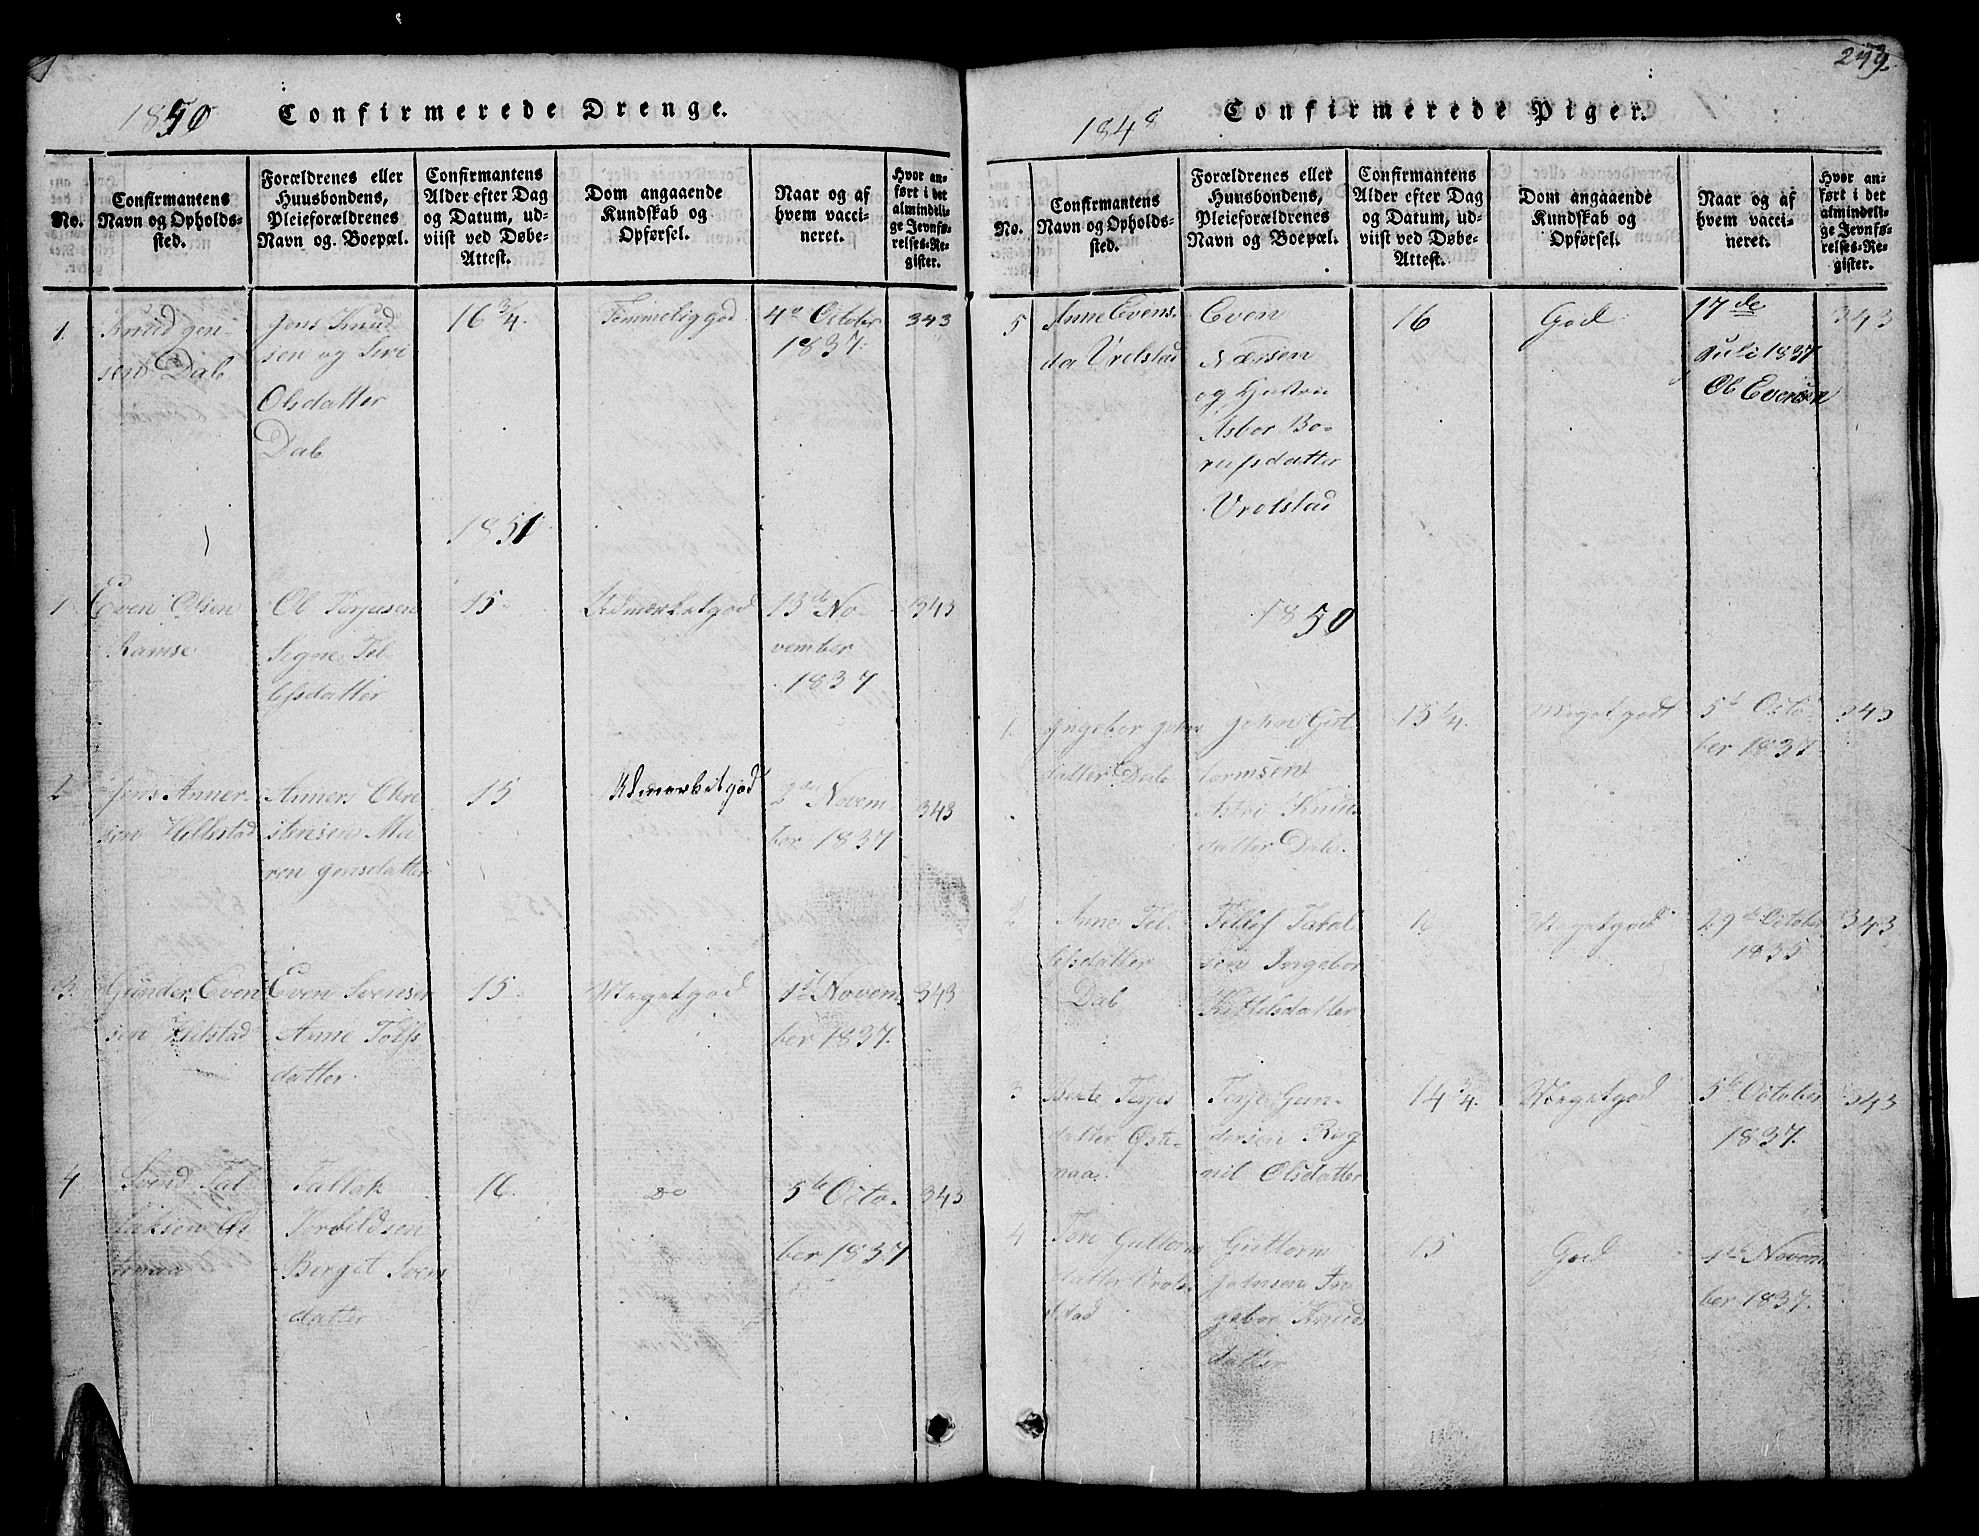 249.
1850 Confirmerede Drenge.
No.
Confirmantens
Navn og Opholds-
sted.
Forældrenes eller
Huusbondens,
Pleieforældrenes
Navn og Boepæl.
Confirmantens
Alder efter Dag
og Datum, ud-
viist ved Døbe-
Attest.
Dom angaaende
Kundskab og
Opførsel.
Naar og af
hvem vacci-
neret.
Hvor an-
ført i det
almindeli-
ge Jevnfø-
relses-Re-
gister.
1.
Knud Jen-
sen Dale
Jens Knud
sen og Siri
Olsdatter
Dale
16 3/4.
Temmelig god
4de October
1837.
343
1851
1
Even Olsen
Ramse
Ole Terjesen
Signe Tel
lefsdatter
15
Udmærket god
13de No-
vember
1837
343
2
Jens Anner
sen Hillestad
Anners Chri
stensen Ma
ren Jensdatter
15
Udmærket god
2den Novem
ber 1837
343
3.
Gunder Even
sen Hillestad
Even Svensen
Anne Tolfs
datter.
15
Meget god
1te Novem
ber 1837.
343
4
Svend Tal
laksen
Tallak
Torkildsen
Berget Sven
datter
16
do
5te Octo-
ber 1837
343
1848 Confirmerede Piger.
No.
Confirmantens
Navn og Opholds-
sted.
Forældrenes eller
Huusbondens,
Pleieforældrenes
Navn og Boepæl.
Confirmantens
Alder efter Dag
og Datum, ud-
viist ved Døbe-
Attest.
Dom angaaende
Kundskab og
Opførsel.
Naar og af
hvem vacci-
neret.
Hvor an-
ført i det
almindeli-
ge Jevnfø-
relses-Re-
gister.
5
Anne Evens-
dater Vrelstad
Even
Næssen
og Hustru
Asbor Bo-
rufsdatter
Vrelstad
16
God
17de
Juli 1837
Ole Evensen
343
1850
1.
Ingebor John
datter Dale
John Gut
tormsen
Astri Knuds
datter Dale.
15 1/4.
Meget godt
5te Octo-
ber 1837
343
2
Anne Tel
lefsdatter
Dale
Tellef Taral
sen Ingebor
Kittelsdatter
16
Meget god
29de October
1835
343
3
Berte Terjes
datter Øste-
naa
Terje Gun-
dersen Rag
nil Olsdatter
14 3/4.
Meget god
5te October
1837.
343
4
Tore Guttorm
datter Vrels-
tad
Guttorm
Johnsen In
gebor Knuds
datter
15
God
1te Novem
ber 1837.